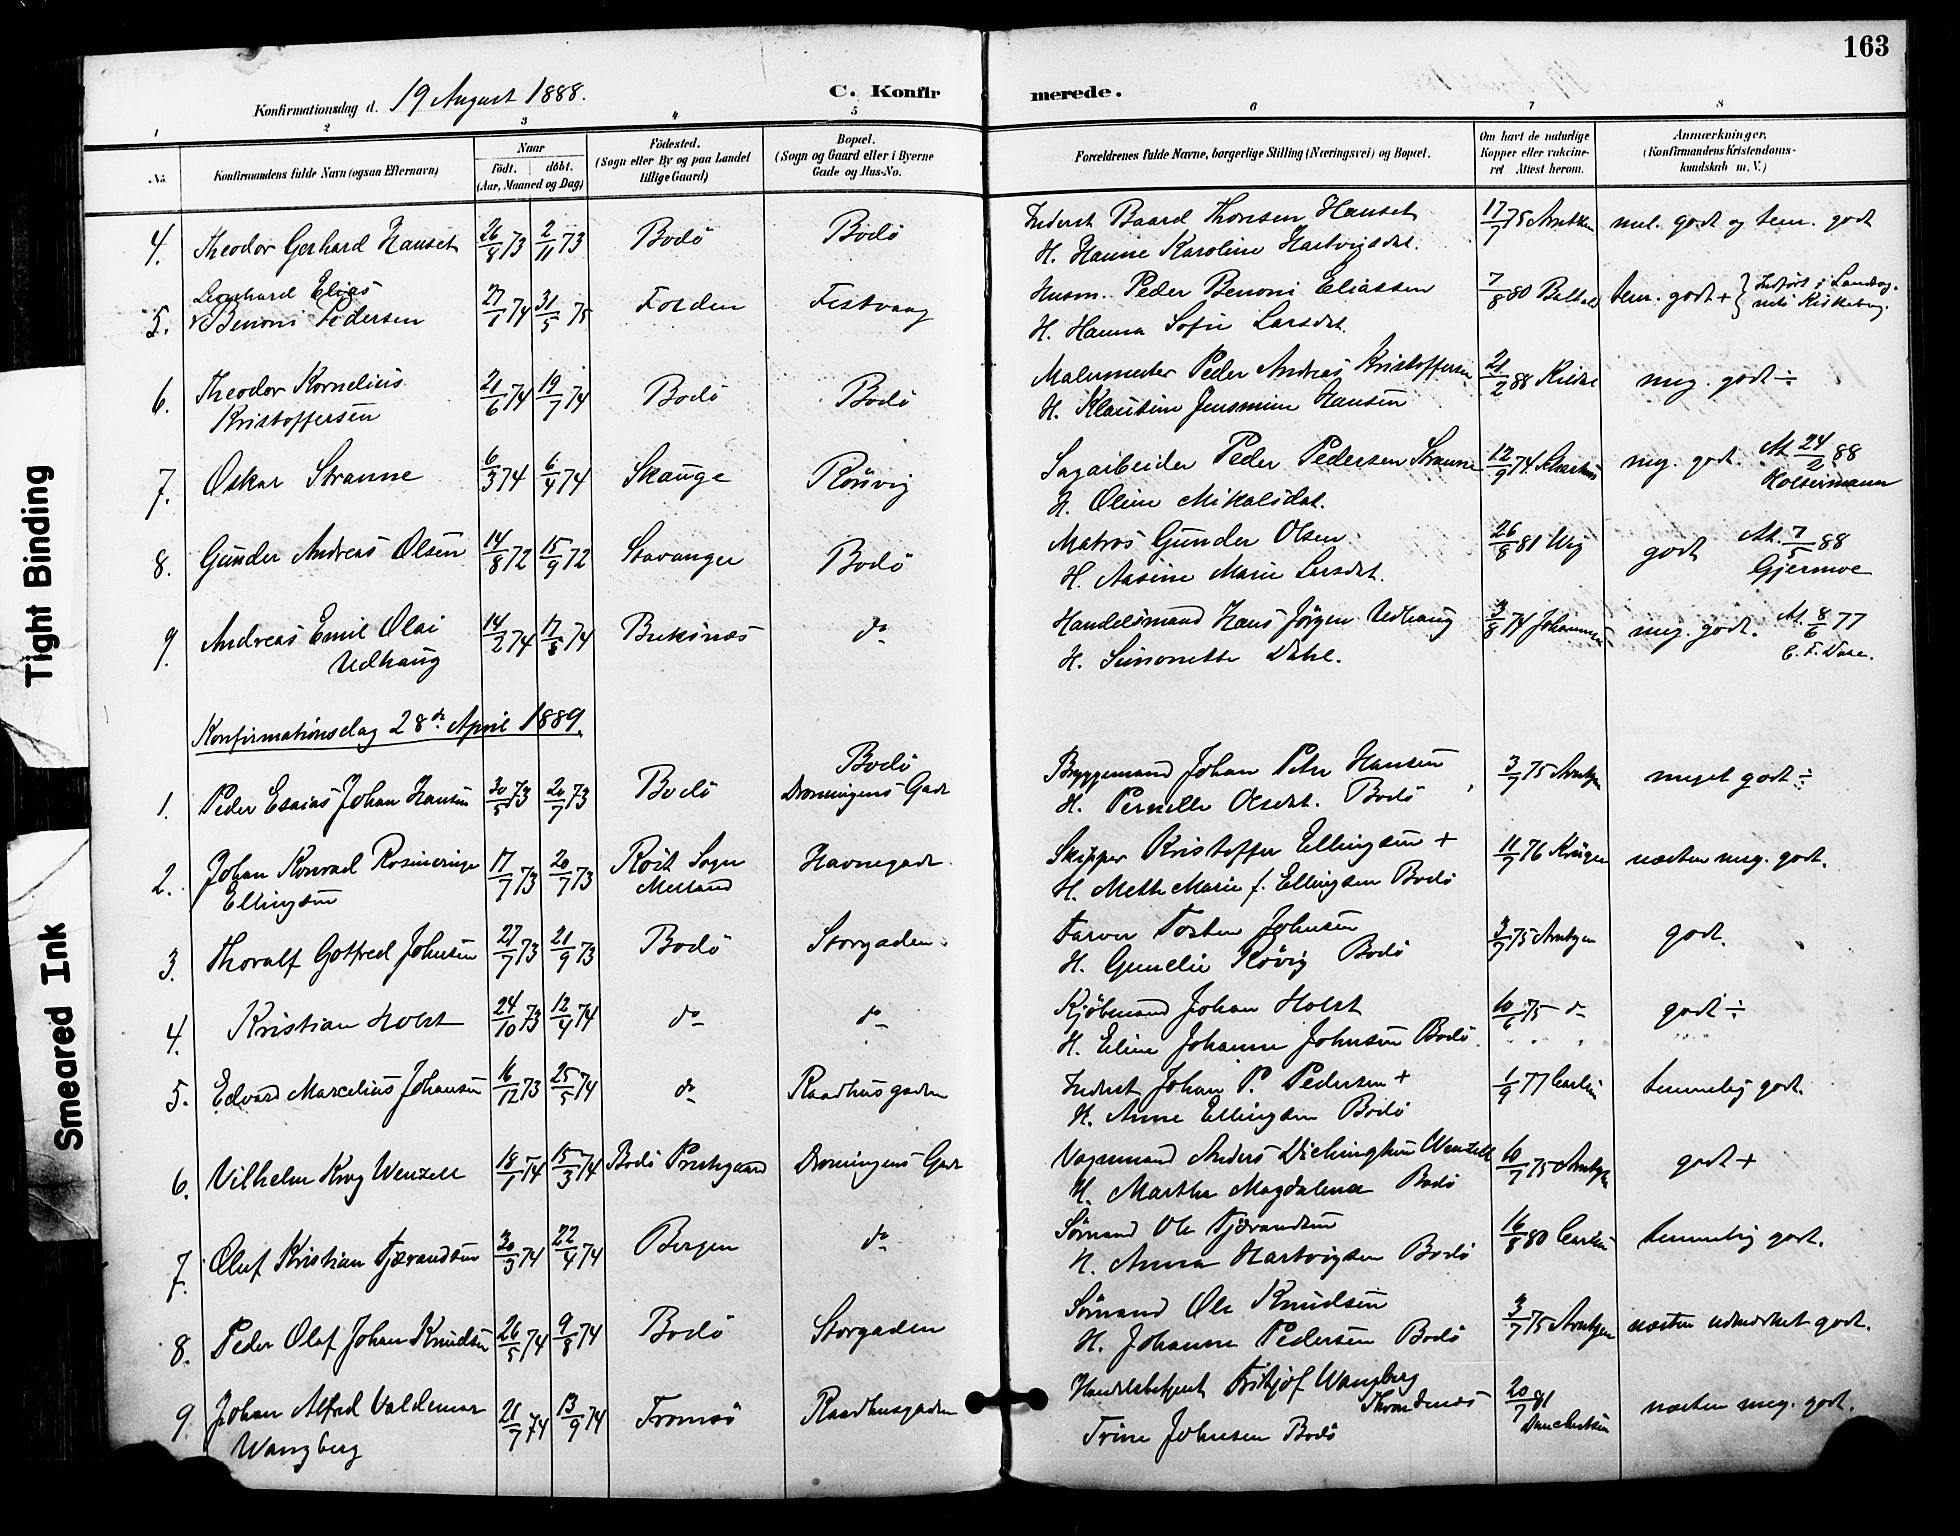 163
Konfirmationsdag d. 19 August 1888.
C. Konfirmerede.
1 2 3 4 5 6 7 8
No.
Konfirmandens fulde Navn (ogsaa Efternavn)
Naar
født. døbt.
(Aar, Maaned og Dag)
Fødested.
(Sogn eller By og paa Landet
tillige Gaard)
Bopæl.
(Sogn og Gaard eller i Byerne
Gade og Hus-No.
Forældrenes fulde Navne, borgerlige Stilling (Næringsvei) og Bopæl.
Om havt de naturlige
Kopper eller vakcine-
ret Attest herom.
Anmærkninger.
(Konfirmandens Kristendoms-
kundskab m. V.)
4. Theodor Gerhard Hanset 26/8 73 2/11 73 Bodö Bodö Inderst Baard Thoresen Hanset 17/7 75 mel. godt og tem. godt
H. Hanne Karoline Hartvigsdat.
Leonhard Elias
5. Benoni Pedersen 27/7 74 31/5 75 Folden Festvaag Husm. Peder Benoni Eliassen 7/8 80 tem. godt +
H. Hanna Sofie Larsdat.
6. Theodor Kornelius 21/6 74 19/7 74 Bodö Bodö Malermester Peder Andreas Kristoffersen 21/2 88 meg. godt ÷
Kristoffersen H. Klausine Jensmine Hansen
7. Oskar Stranne 6/3 74 6/4 74 Skauge Rönvig Sagarbeider Peder Pedersen Stranne 12/9 74 meg. godt. At. 24/2 88
H. Oline Mikalsdat. Koltermann
8. Gunder Andreas Olsen 14/8 72 15/9 72 Stavanger Bodö Matros Gunder Olsen 26/8 81 godt At. 7/5 88
H. Aasine Marie Larsdat. Gjermoe
9. Andreas Emil Olai 14/2 74 17/5 74 Buksnæs do Handelsmand Hans Jörgen Udhaug 3/8 74 Johannesen meg. godt. At. 8/6 77
Udhaug H. Simonette Dahl.
Konfirmationsdag 28de April 1889.
1. Peder Esaias Johan Hansen 30/5 73 20/7 73 Bodö Bodö Dronningens Gade Bryggemand Johan Peter Hansen 3/7 75 Arntzen meget godt ÷
H. Pernille Olsdat. Bodö
2. Johan Konrad 17/7 73 20/7 73 Röst Sogn Havnegade Skipper Kristoffer Ellingsen + 11/7 76 Krüger næsten meg. godt.
Ellingsen H. Mette Marie f. Ellingsen Bodö
3. Thoralf Gotfred Johnsen 27/7 73 21/9 73 Bodö Storgaden. Farver Tosten Johnsen 3/7 75 Arntzen godt.
H. Gunelie Rövig Bodö
4. Kristian Holst 24/10 73 12/4 74 do do Kjöbmand Johan Holst 10/6 75 do godt ÷
H. Eline Johanne Johnsen Bodö
5. Edvard Marcelius Johansen 16/12 73 25/5 74 do Raadhusgaden Inderst Johan P. Pedersen + 1/9 77 temmelig godt.
H. Anne Ellingsen Bodö
6. Vilhelm Krog Wenzell 18/1 74 15/3 74 Bodö Prestegaard Dronningens Gade Vognmand Anders Wenzell 10/7 75 Arntzen godt +
H. Marthe Magdalena Bodö
7. Oluf Kristian Tjærandsen 30/3 74 22/4 74 Bergen do Sömand Ole Tjærandsen 16/8 80 temmelig godt.
H. Anna Hartvigsen Bodö
8. Peder Olaf Johan Knudsen 26/5 74 9/8 74 Bodö Storgaden Sömand Ole Knudsen 3/7 75 Arntzen næsten udmærket godt.
H. Johanne Pedersen Bodö
9. Johan Alfred Valdemar 21/7 74 13/9 74 Tromsö Raadhusgaden Handelsbetjent Fritjof Wangberg 20/7 81 næsten meg. godt.
Wangberg Trine Johnsen Bodö
Tight Binding
Smeared Ink